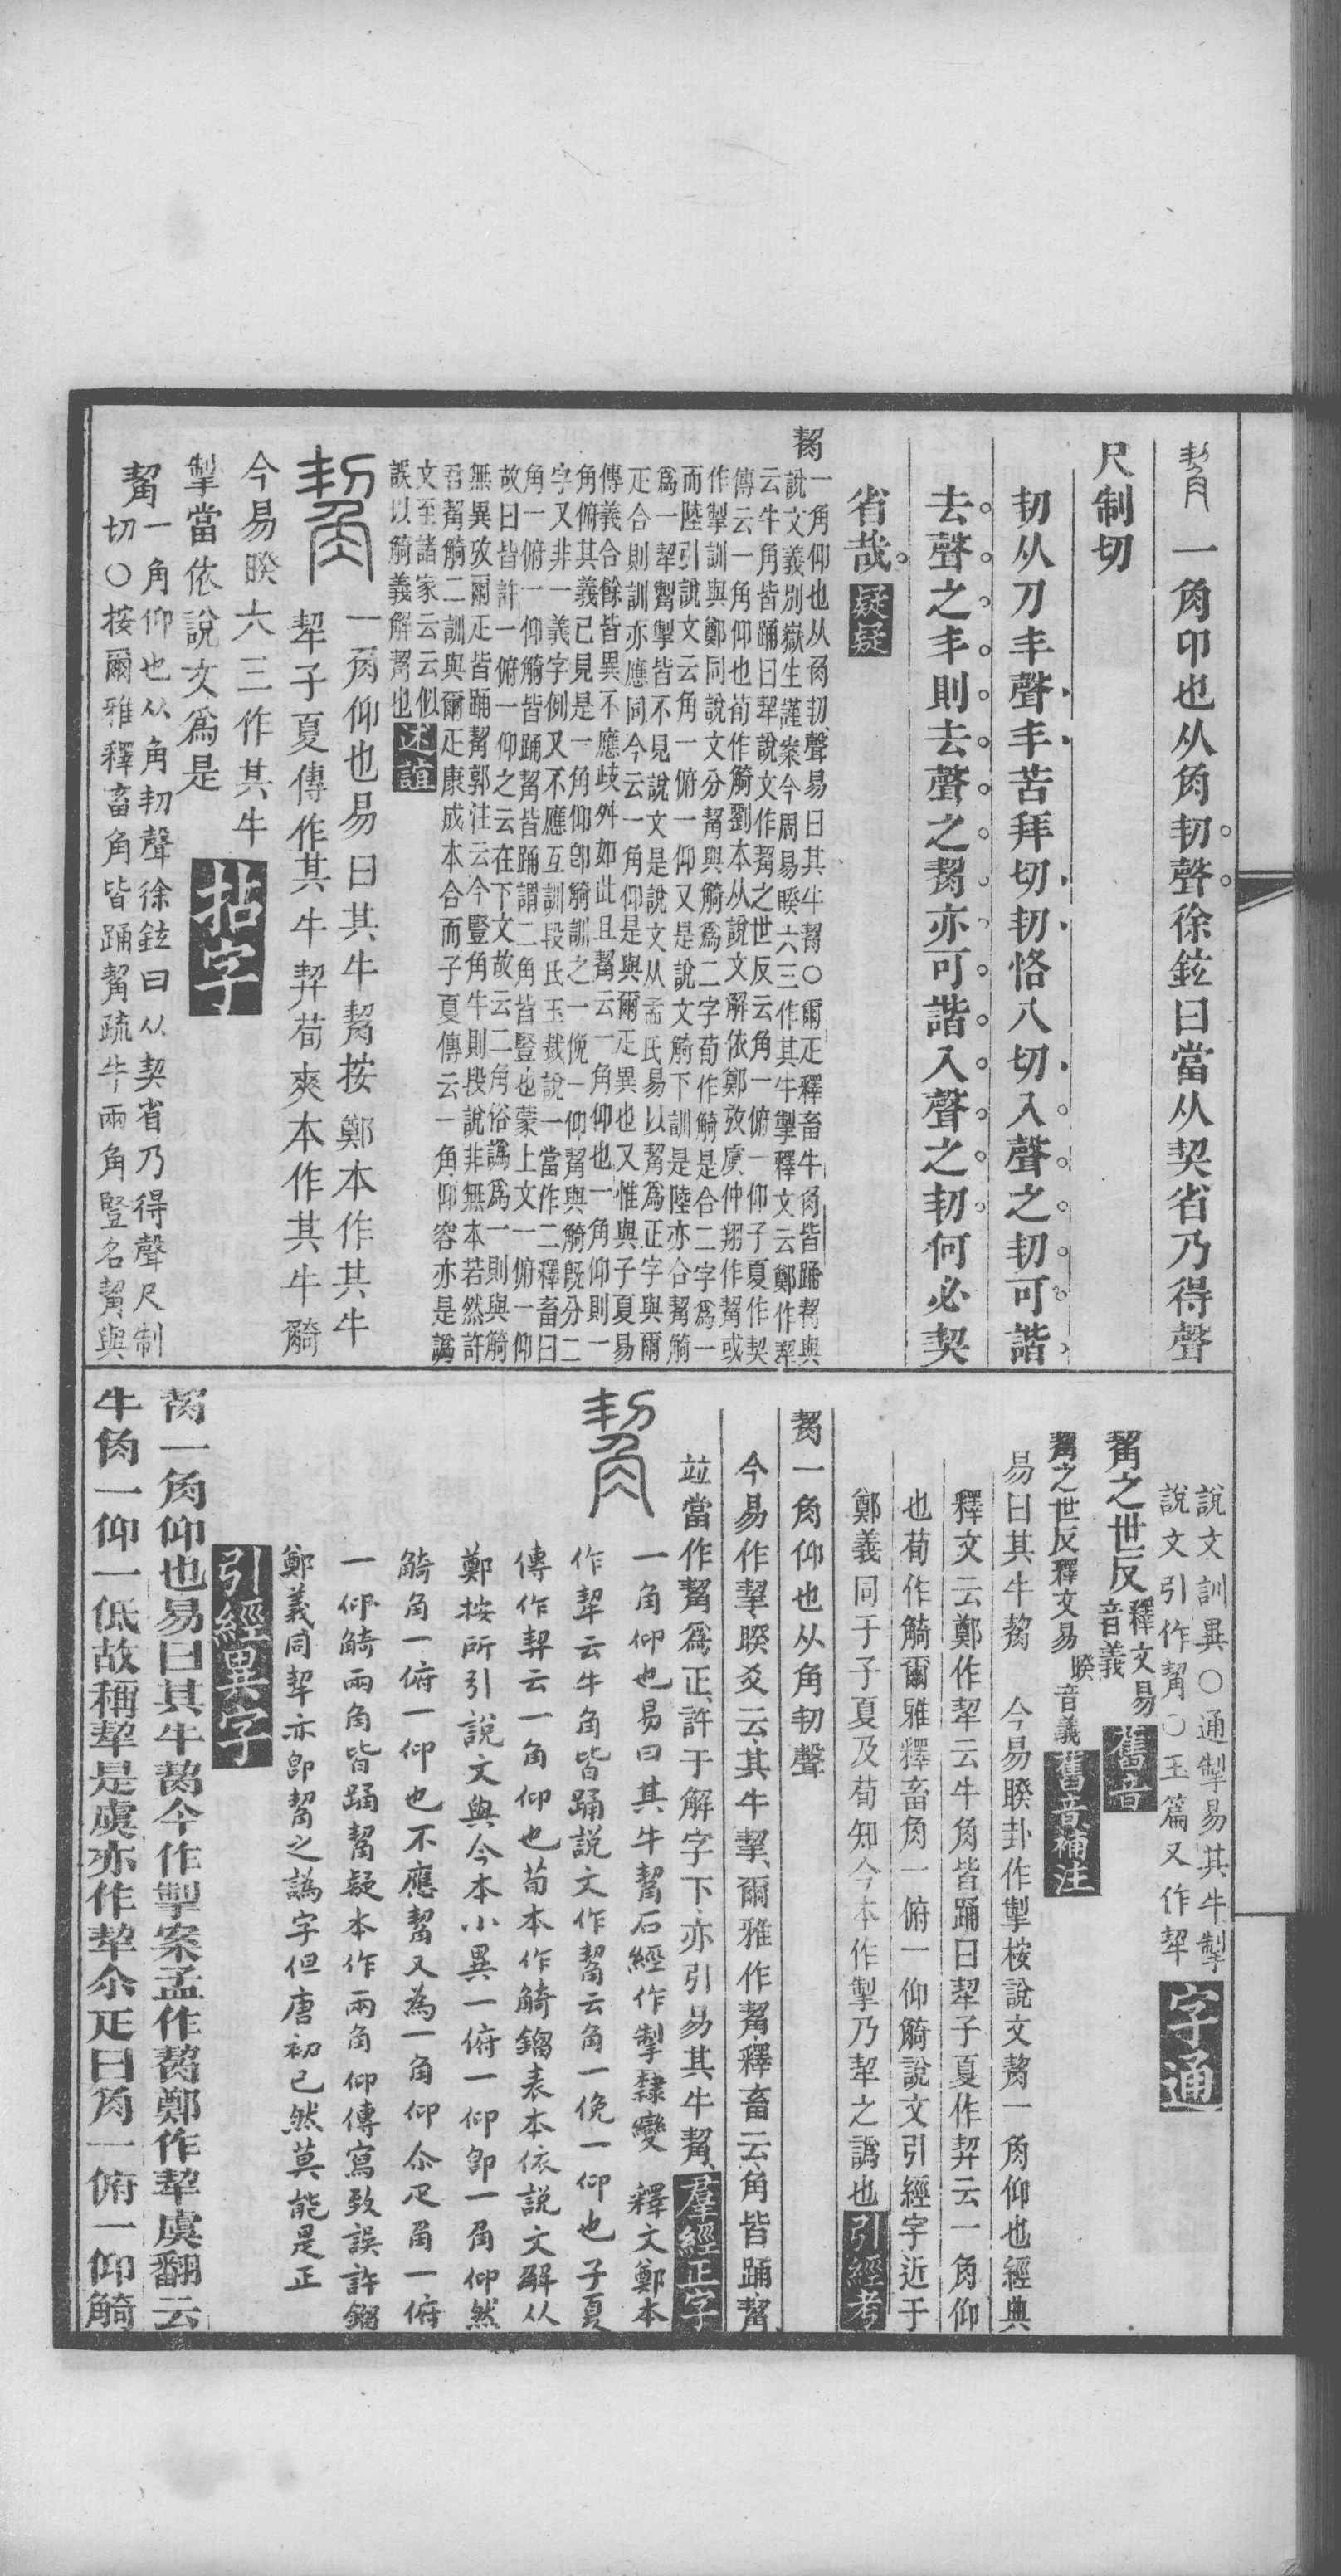 觢一角卬也从角㓞聲徐鉉曰當从契省乃得聲
尺制切
㓞从刀丰聲丰苦拜切㓞恪八切入聲之㓞可諧
去聲之丰則去聲之觢亦可諧入聲之㓞何必契
省哉疑疑
觢一角仰也从角㓞聲易曰其牛觢○爾疋釋畜牛角皆踊觢與
說文義別嶽生謹案今周易睽六三作其牛掣釋文云鄭作犎
云牛角皆踊曰犎說文作觢之世反云角一俯一仰子夏作契
傳云一角仰也荀作觭劉本从說文解依鄭攷虞仲翔作觢或
作掣訓與鄭同說文分觢與觭爲二字荀作觭是合二字爲一
而陸引說文云角一俯一仰又是說文觭下訓是陸亦合觢觭
爲一犎觢掣皆不見說文是說文从孟氏易以觢爲正字與爾
疋合則訓亦應同今云一角仰是與爾疋異也又惟與子夏易
傳義合餘皆異不應歧舛如此且觢云一角仰也一角仰則一
角俯其義已見是一角仰卽觭訓之一俛一仰觢與觭旣分二
字又非一義字例又不應互訓段氏玉裁說一當作二釋畜曰
角一俯一仰觭皆踊觢皆踊謂二角皆豎也蒙上文一俯一仰
故曰皆許一俯一仰之云在下文故云二角俗譌爲一則與觭
無異攷爾疋皆踊觢郭注云今豎角牛則段說非無本若然許
君觢觭二訓與爾疋康成本合而子夏傳云一角仰容亦是譌
文至諸家云云似
誤以觭義解觢也述誼
觢一角仰也易曰其牛觢按鄭本作其牛
犎子夏傳作其牛契荀爽本作其牛觭
今易睽六三作其牛
掣當依說文爲是拈字
觢一角仰也从角㓞聲徐鉉曰从契省乃得聲尺制
切○按爾雅釋畜角皆踊觢疏牛兩角豎名觢與
說文訓異○通掣易其牛掣
說文引作觢○玉篇又作犎字通
觢之世反釋文易音義舊音
觢之世反釋文易睽音義舊音補注
易曰其牛觢 今易睽卦作掣桉說文觢一角仰也經典
釋文云鄭作犎云牛角皆踊曰犎子夏作契云一角仰
也荀作觭爾雅釋畜角一俯一仰觭說文引經字近于
鄭義同于子夏及荀知今本作掣乃犎之譌也引經考
觢一角仰也从角㓞聲
今易作挈睽爻云其牛挈爾雅作觢釋畜云角皆踊觢
竝當作觢爲正許于解字下亦引易其牛觢羣經正字
觢一角仰也易曰其牛觢石經作掣隸變 釋文鄭本
作犎云牛角皆踊說文作觢云角一俛一仰也子夏
傳作契云一角仰也荀本作觭鎦表本依說文解从
鄭按所引說文與今本小異一俯一仰卽一角仰然
觭角一俯一仰也不應觢又為一角仰尒疋角一俯
一仰觭兩角皆踊觢疑本作兩角仰傳寫致誤許鎦
鄭義同犎亦卽觢之譌字但唐初已然莫能是正
引經異字
觢一角仰也易曰其牛觢今作掣案孟作觢鄭作犎虞翻云
牛角一仰一低故稱犎是虞亦作犎尒疋曰角一俯一仰觭